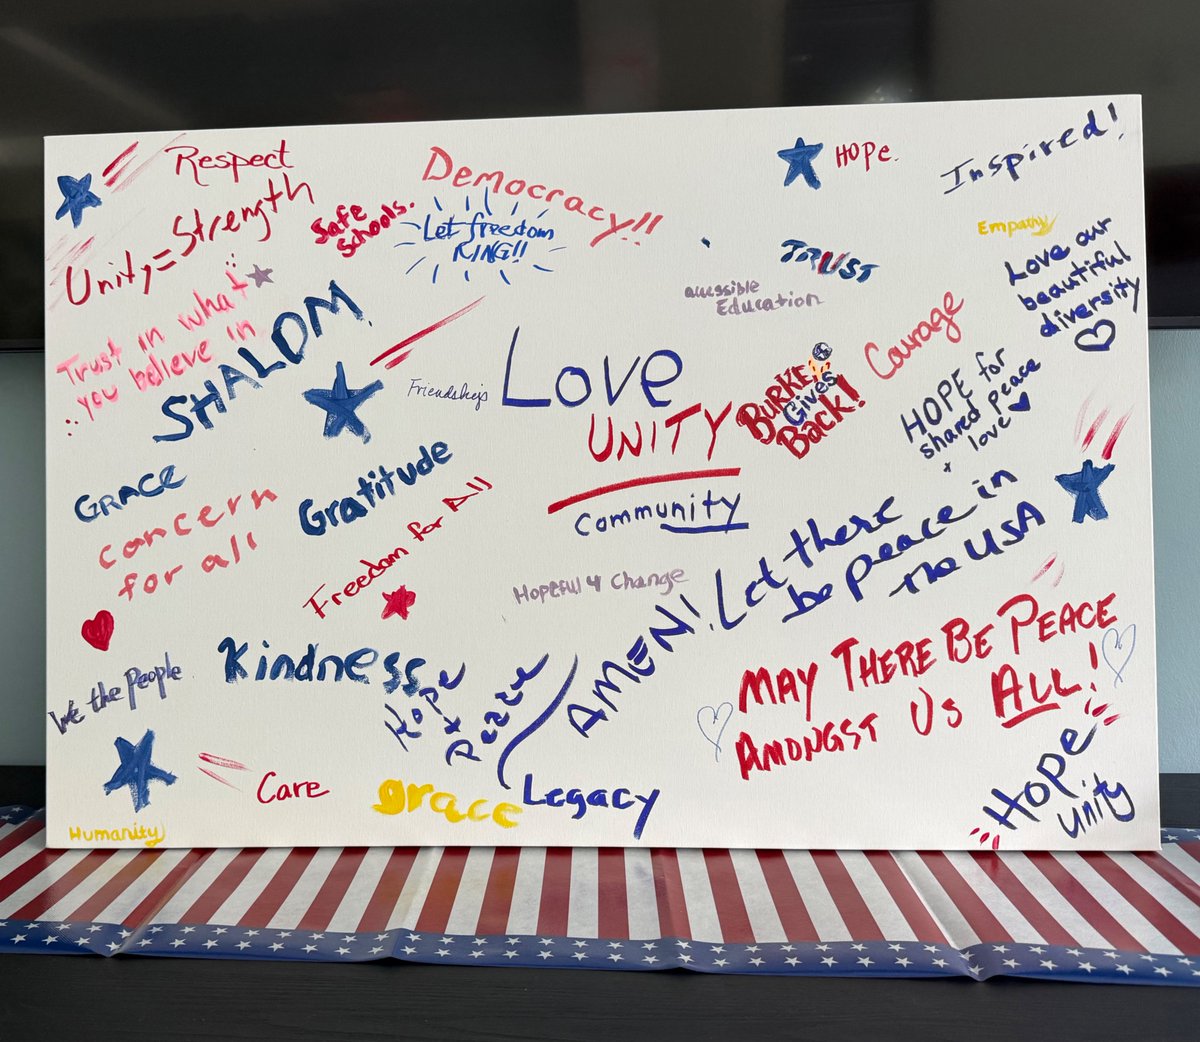 Respect
Unity = Strength
Safe
Schools.
Democracy!!
Let freedom
RING!!
Hope.
Inspired!
Empathy
Love our
beautiful
diversity
TRUST
accessible
Education
Trust in what
you believe in
SHALOM.
Friendships
Love
UNITY
Community
BURKE
Gives
Back!
Courage
HOPE for
shared peace
+ love
GRACE
Gratitude
concern
for all
Freedom for All
Hopeful 4 Change
Let there
be peace in
the USA
AMEN!
MAY THERE BE PEACE
AMONGST US ALL!
We the People
Kindness
Hope
+
Peace
Legacy
Care
grace
Humanity
HOPE
Unity